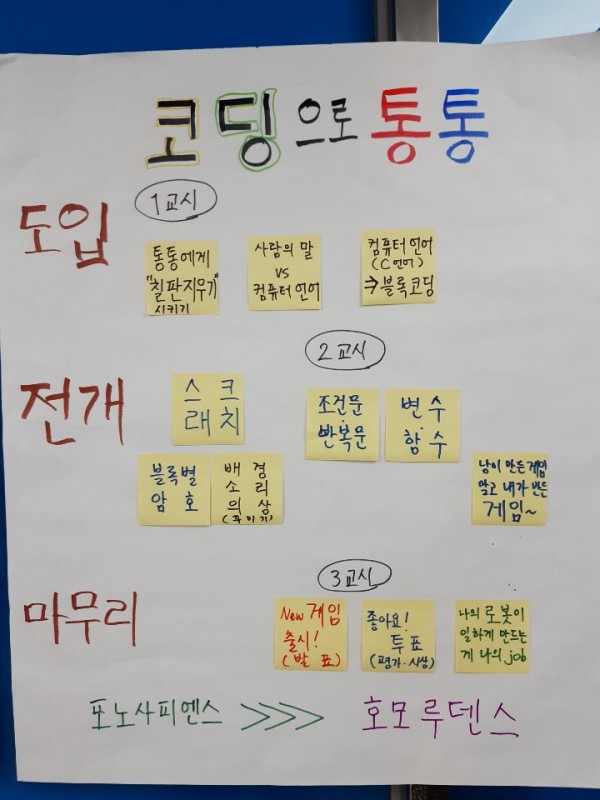 코딩으로 통통
도입
1교시
통통에게
"칠판지우기"
시키기
사람의 말
vs
컴퓨터 언어
컴퓨터 언어
(C언어)
⇒블록코딩
전개
2교시
스크
래치
조건문
반복문
변수
함수
블록별
암호
배경
소리
의상
(꾸미기)
남이 만든 게임
말고 내가 만든
게임~
마무리
3교시
New 게임
출시!
(발표)
좋아요!
투표
(평가·시상)
나의 로봇이
일하게 만드는
게 나의 job
포노사피엔스 >>> 호모루덴스